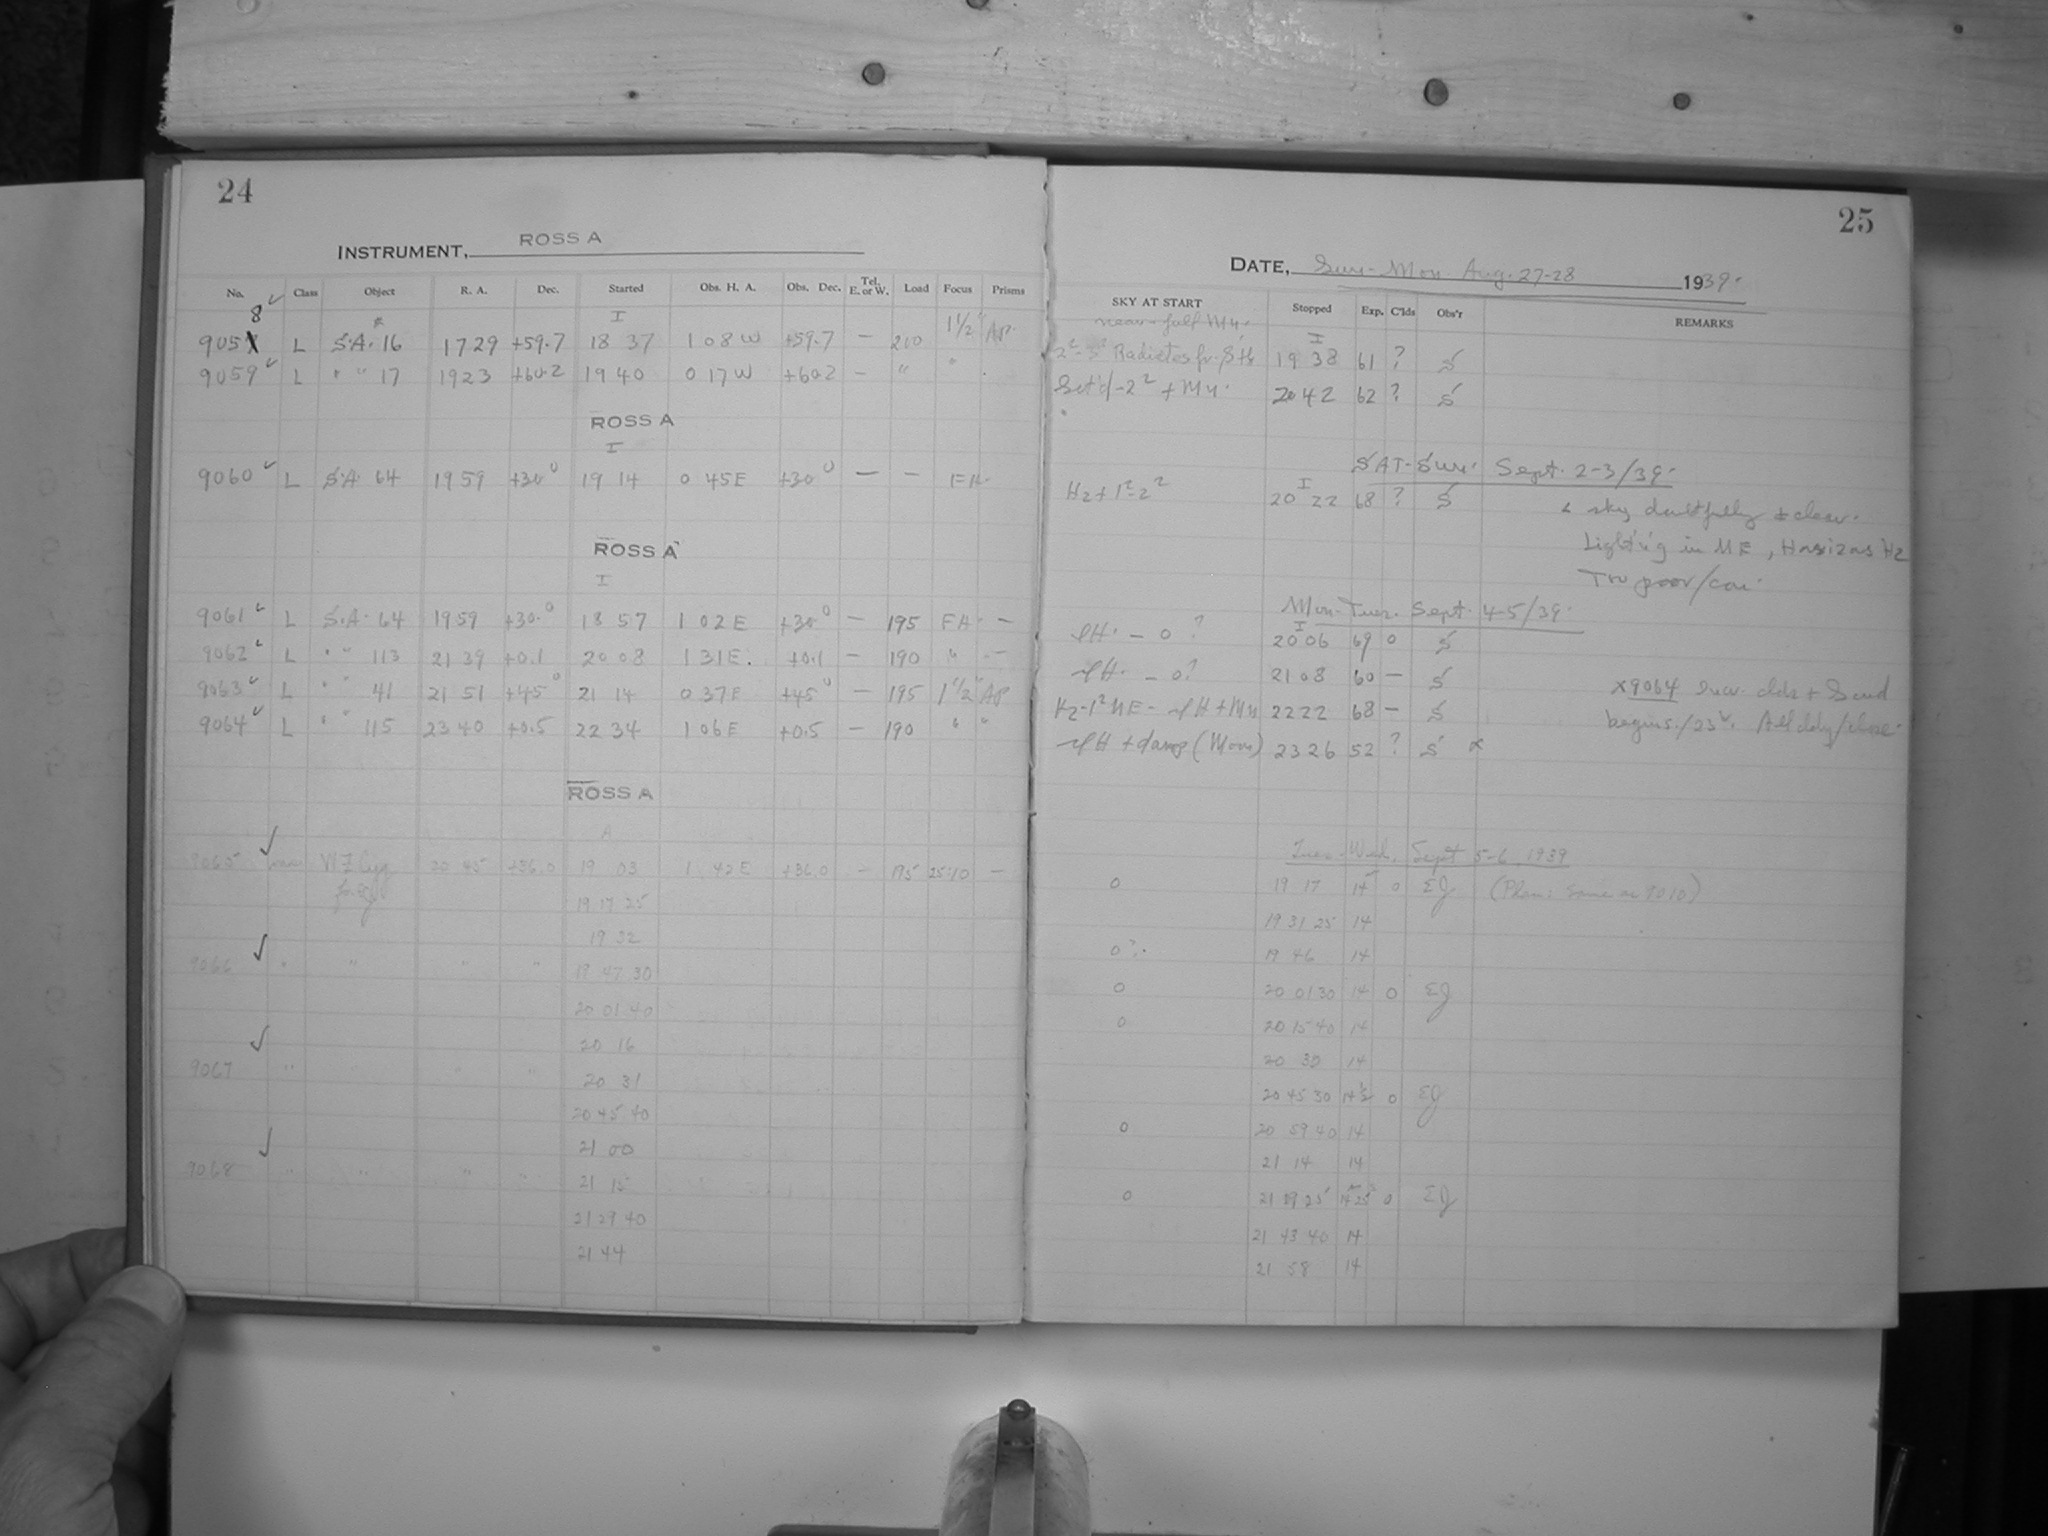 24
INSTRUMENT, ROSS A
No. Class Object R. A. Dec. Started Obs. H. A. Obs. Dec. Tel. E. or W. Load Focus Prisms
8 I
905 L S.A. 16 1729 +59.7 18 37 1 08 W +59.7 — 210 1½" Ap.
9059 L " " 17 1923 +60.2 19 40 0 17 W +60.2 — " "
ROSS A
I
9060 L S.A. 64 1959 +30° 19 14 0 45 E +30° — — FH.
ROSS A
I
9061 L S.A. 64 1959 +30.° 18 57 1 02 E +30° — 195 FH. —
9062 L " " 113 21 39 +0.1 20 08 1 31 E. +0.1 — 190 " —
9063 L " " 41 21 51 +45° 21 14 0 37 E +45° — 195 1½" Ap
9064 L " " 115 23 40 +0.5 22 34 1 06 E +0.5 — 190 " "
ROSS A
A
9065 Cyg 20 45 +36.0 19 03 1 42 E +36.0 — 195 25:10 —
19 17 25
19 32
9066 " " " " 19 47 30
20 01 40
20 16
9067 " " " " 20 31
20 45 40
21 00
9068 " " " " 21 15
21 29 40
21 44
25
DATE, Sun-Mon Aug. 27-28 1939.
SKY AT START Stopped Exp. C'lds Obs'r REMARKS
near-full Mn. I
Radiates fr. Sth 19 38 61 ? S
Set'd-2² + Mn. 20 42 62 ? S
SAT-Sun. Sept. 2-3/39.
I
Hz + 1²-2² 20 22 68 ? S
sky doubtfully ± clear.
Light'g in NE, Horizons Hz
Too poor/con.
Mon-Tues. Sept. 4-5/39.
I
H. — 0 ? 20 06 69 0 S
H. — 0? 21 08 60 — S
Hz-1² NE- H + Mn 22 22 68 — S
H + damp (Moon) 23 26 52 ? S x
x9064 Incr. clds + Scud
begins./23 All cldy/close.
Tues-Wed. Sept 5-6 1939
0 19 17 14 0 EJ (Phan: same as 9010)
19 31 25 14
0?. 19 46 14
0 20 01 30 14 0 EJ
0 20 15 40 14
20 30 14
20 45 30 14½ 0 EJ
0 20 59 40 14
21 14 14
0 21 29 25 14 25 0 EJ
21 43 40 14
21 58 14